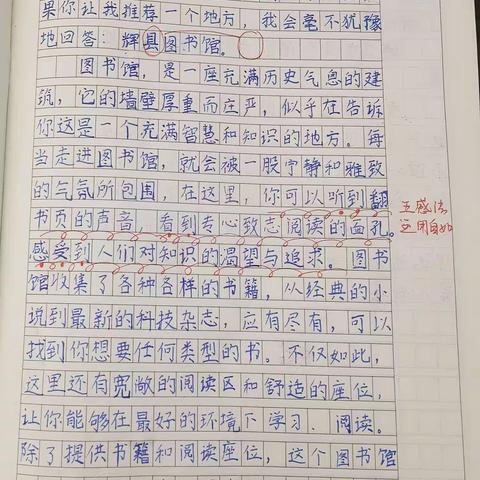 果你让我推荐一个地方，我会毫不犹豫
地回答：辉县图书馆。
图书馆，是一座充满历史气息的建
筑，它的墙壁厚重而庄严，似乎在告诉
你这是一个充满智慧和知识的地方。每
当走进图书馆，就会被一股宁静和雅致
的气氛所包围，在这里，你可以听到翻
书页的声音，看到专心致志阅读的面孔。
感受到人们对知识的渴望与追求。图书
馆收集了各种各样的书籍，从经典的小
说到最新的科技杂志，应有尽有，可以
找到你想要任何类型的书。不仅如此，
这里还有宽敞的阅读区和舒适的座位，
让你能够在最好的环境下学习、阅读。
除了提供书籍和阅读座位，这个图书馆
五感法
运用自如